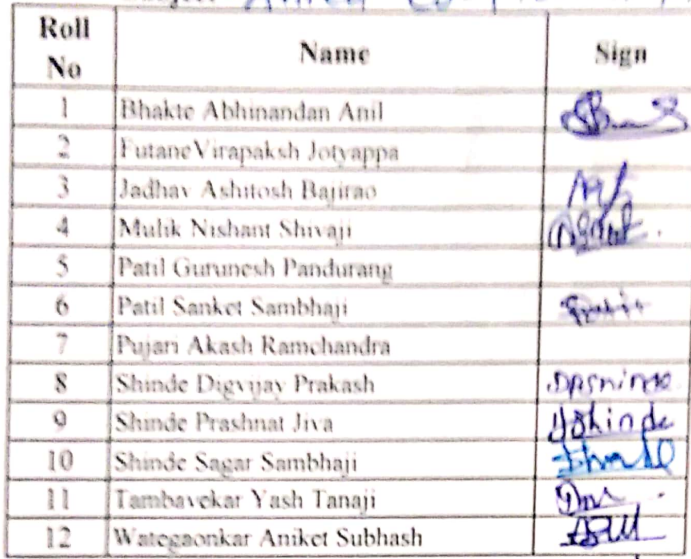 Roll No Name Sign
1 Bhakte Abhinandan Anil
2 FutaneVirapaksh Jotyappa
3 Jadhav Ashitosh Bajirao
4 Mulik Nishant Shivaji
5 Patil Gurunesh Pandurang
6 Patil Sanket Sambhaji
7 Pujari Akash Ramchandra
8 Shinde Digvijay Prakash
9 Shinde Prashnat Jiva
10 Shinde Sagar Sambhaji
11 Tambavekar Yash Tanaji
12 Wategaonkar Aniket Subhash